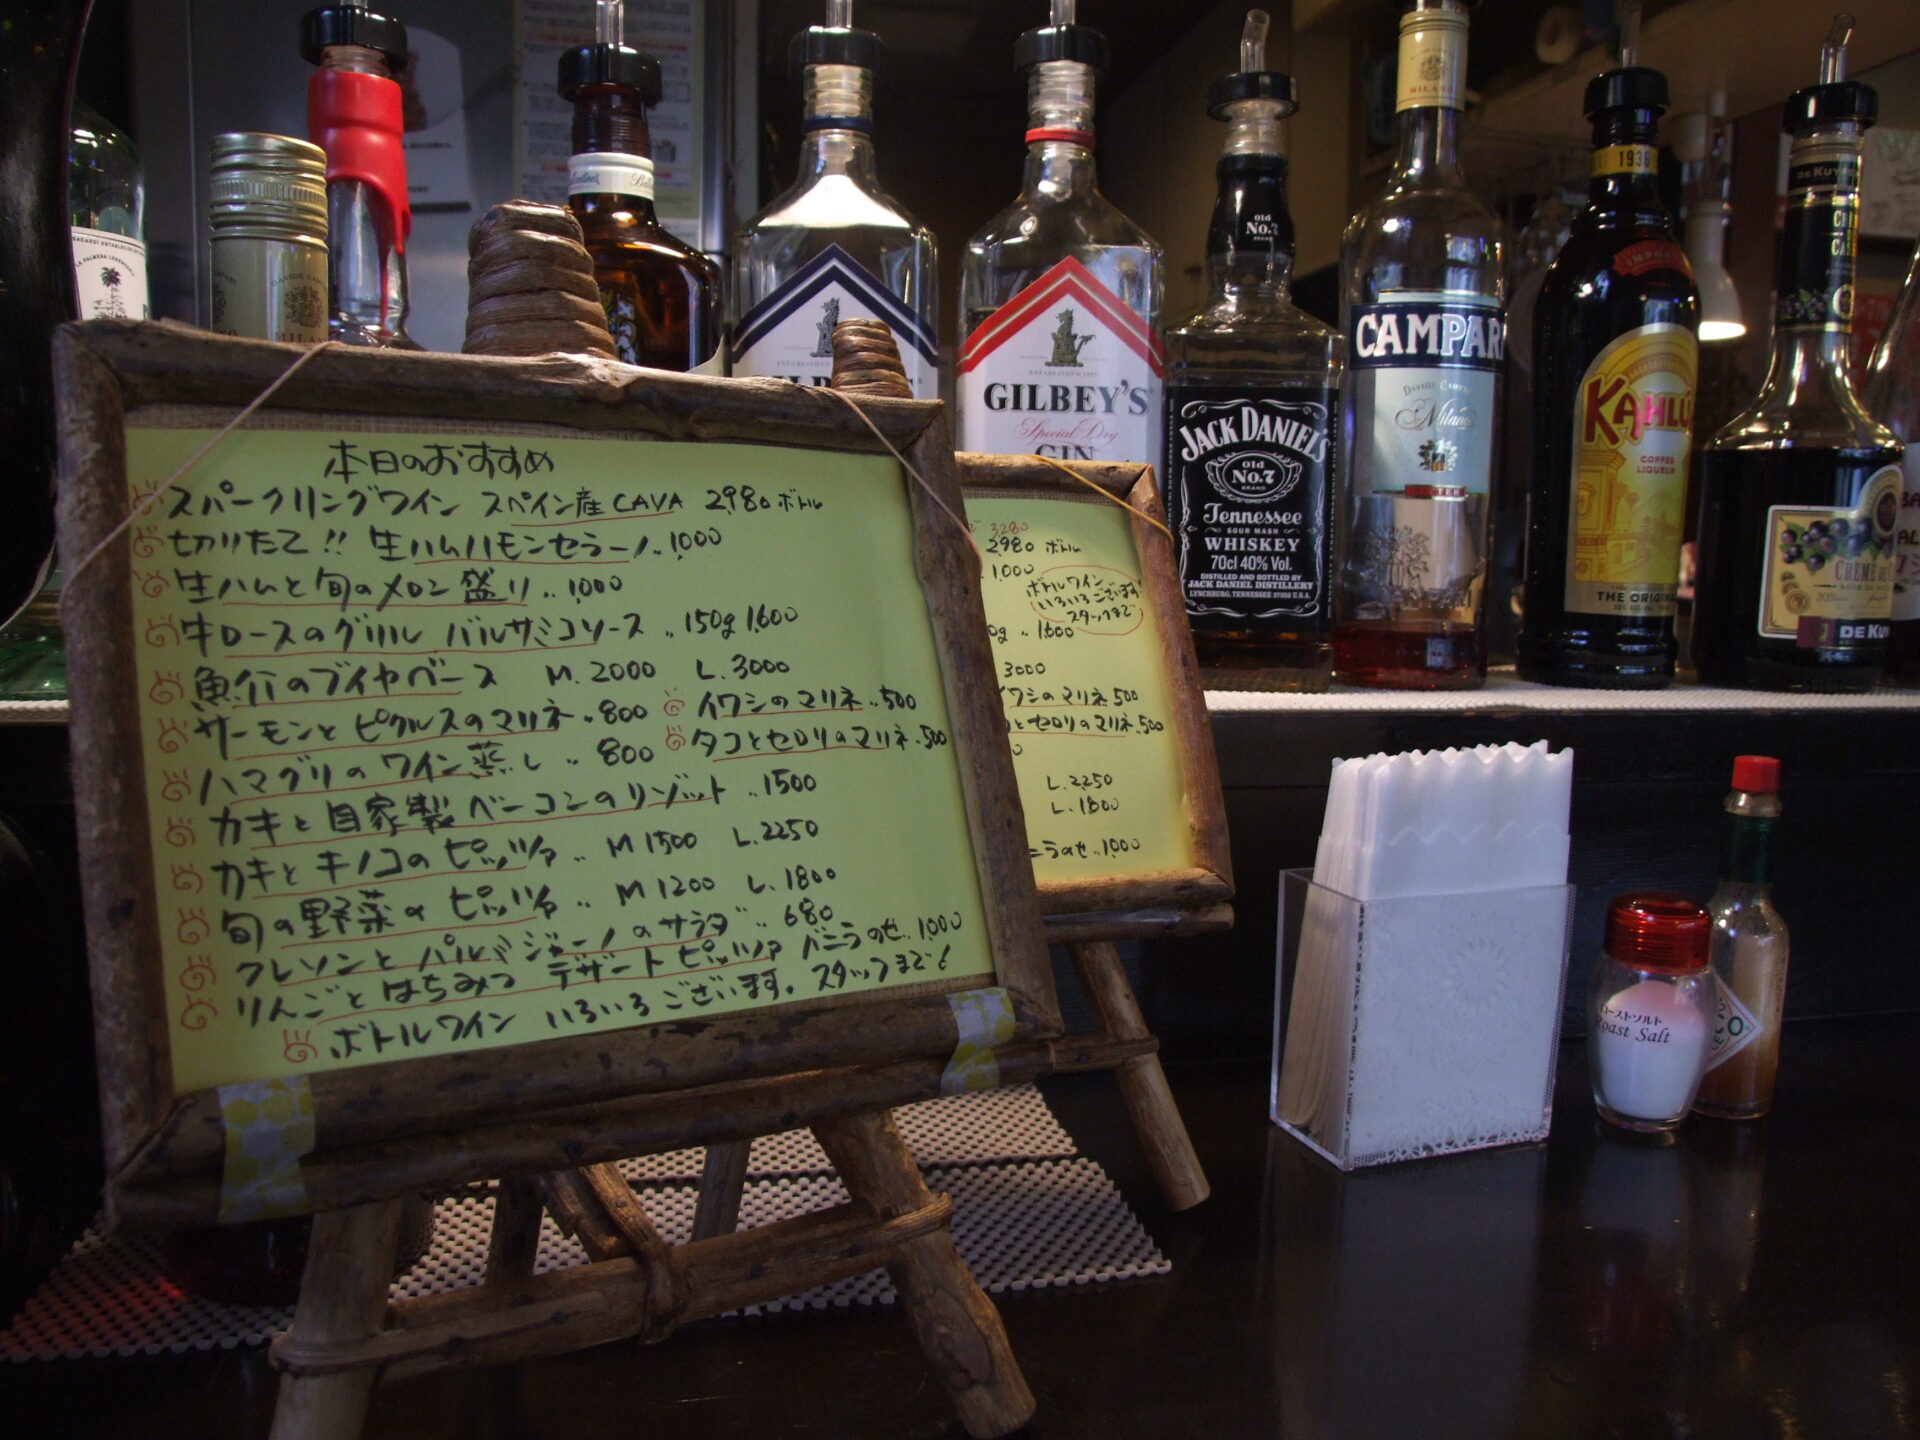 本日のおすすめ
スパークリングワイン スペイン産CAVA 2980 ボトル
切りたて!! 生ハムハモンセラーノ..1000
生ハムと旬のメロン盛り..1000
牛ロースのグリル バルサミコソース..150g 1600
魚介のブイヤベース M.2000 L.3000
サーモンとピクルスのマリネ..800
イワシのマリネ..500
ハマグリのワイン蒸し..800
タコとセロリのマリネ.500
カキと自家製ベーコンのリゾット..1500
カキとキノコのピッツァ.. M 1500 L.2250
旬の野菜のピッツァ.. M 1200 L.1800
クレソンとパルミジャーノのサラダ..680
りんごとはちみつ デザートピッツァ バニラのせ..1000
ボトルワイン いろいろございます。スタッフまで!
3280
2980 ボトル
1000
ボトルワイン
いろいろございます
スタッフまで
0g..1600
3000
イワシのマリネ 500
とセロリのマリネ.500
L.2250
L.1800
ニラのせ..1000
BACARDI ESTABLECIDO
LA PALMERA LEGENDARIA
GILBEY'S
Special Dry
GIN
Old
No.7
BRAND
JACK DANIEL'S
Old
No.7
BRAND
Tennessee
SOUR MASH
WHISKEY
70cl 40% Vol.
DISTILLED AND BOTTLED BY
JACK DANIEL DISTILLERY
LYNCHBURG, TENNESSEE 37352 U.S.A.
MILANO
CAMPARI
Davide Campari
Milano
BITTER
1936
KAHLÚA
COFFEE
LIQUEUR
THE ORIGINAL
DE KUYPER
CRÈME DE
20%vol
DE KUY
ローストソルト
Roast Salt